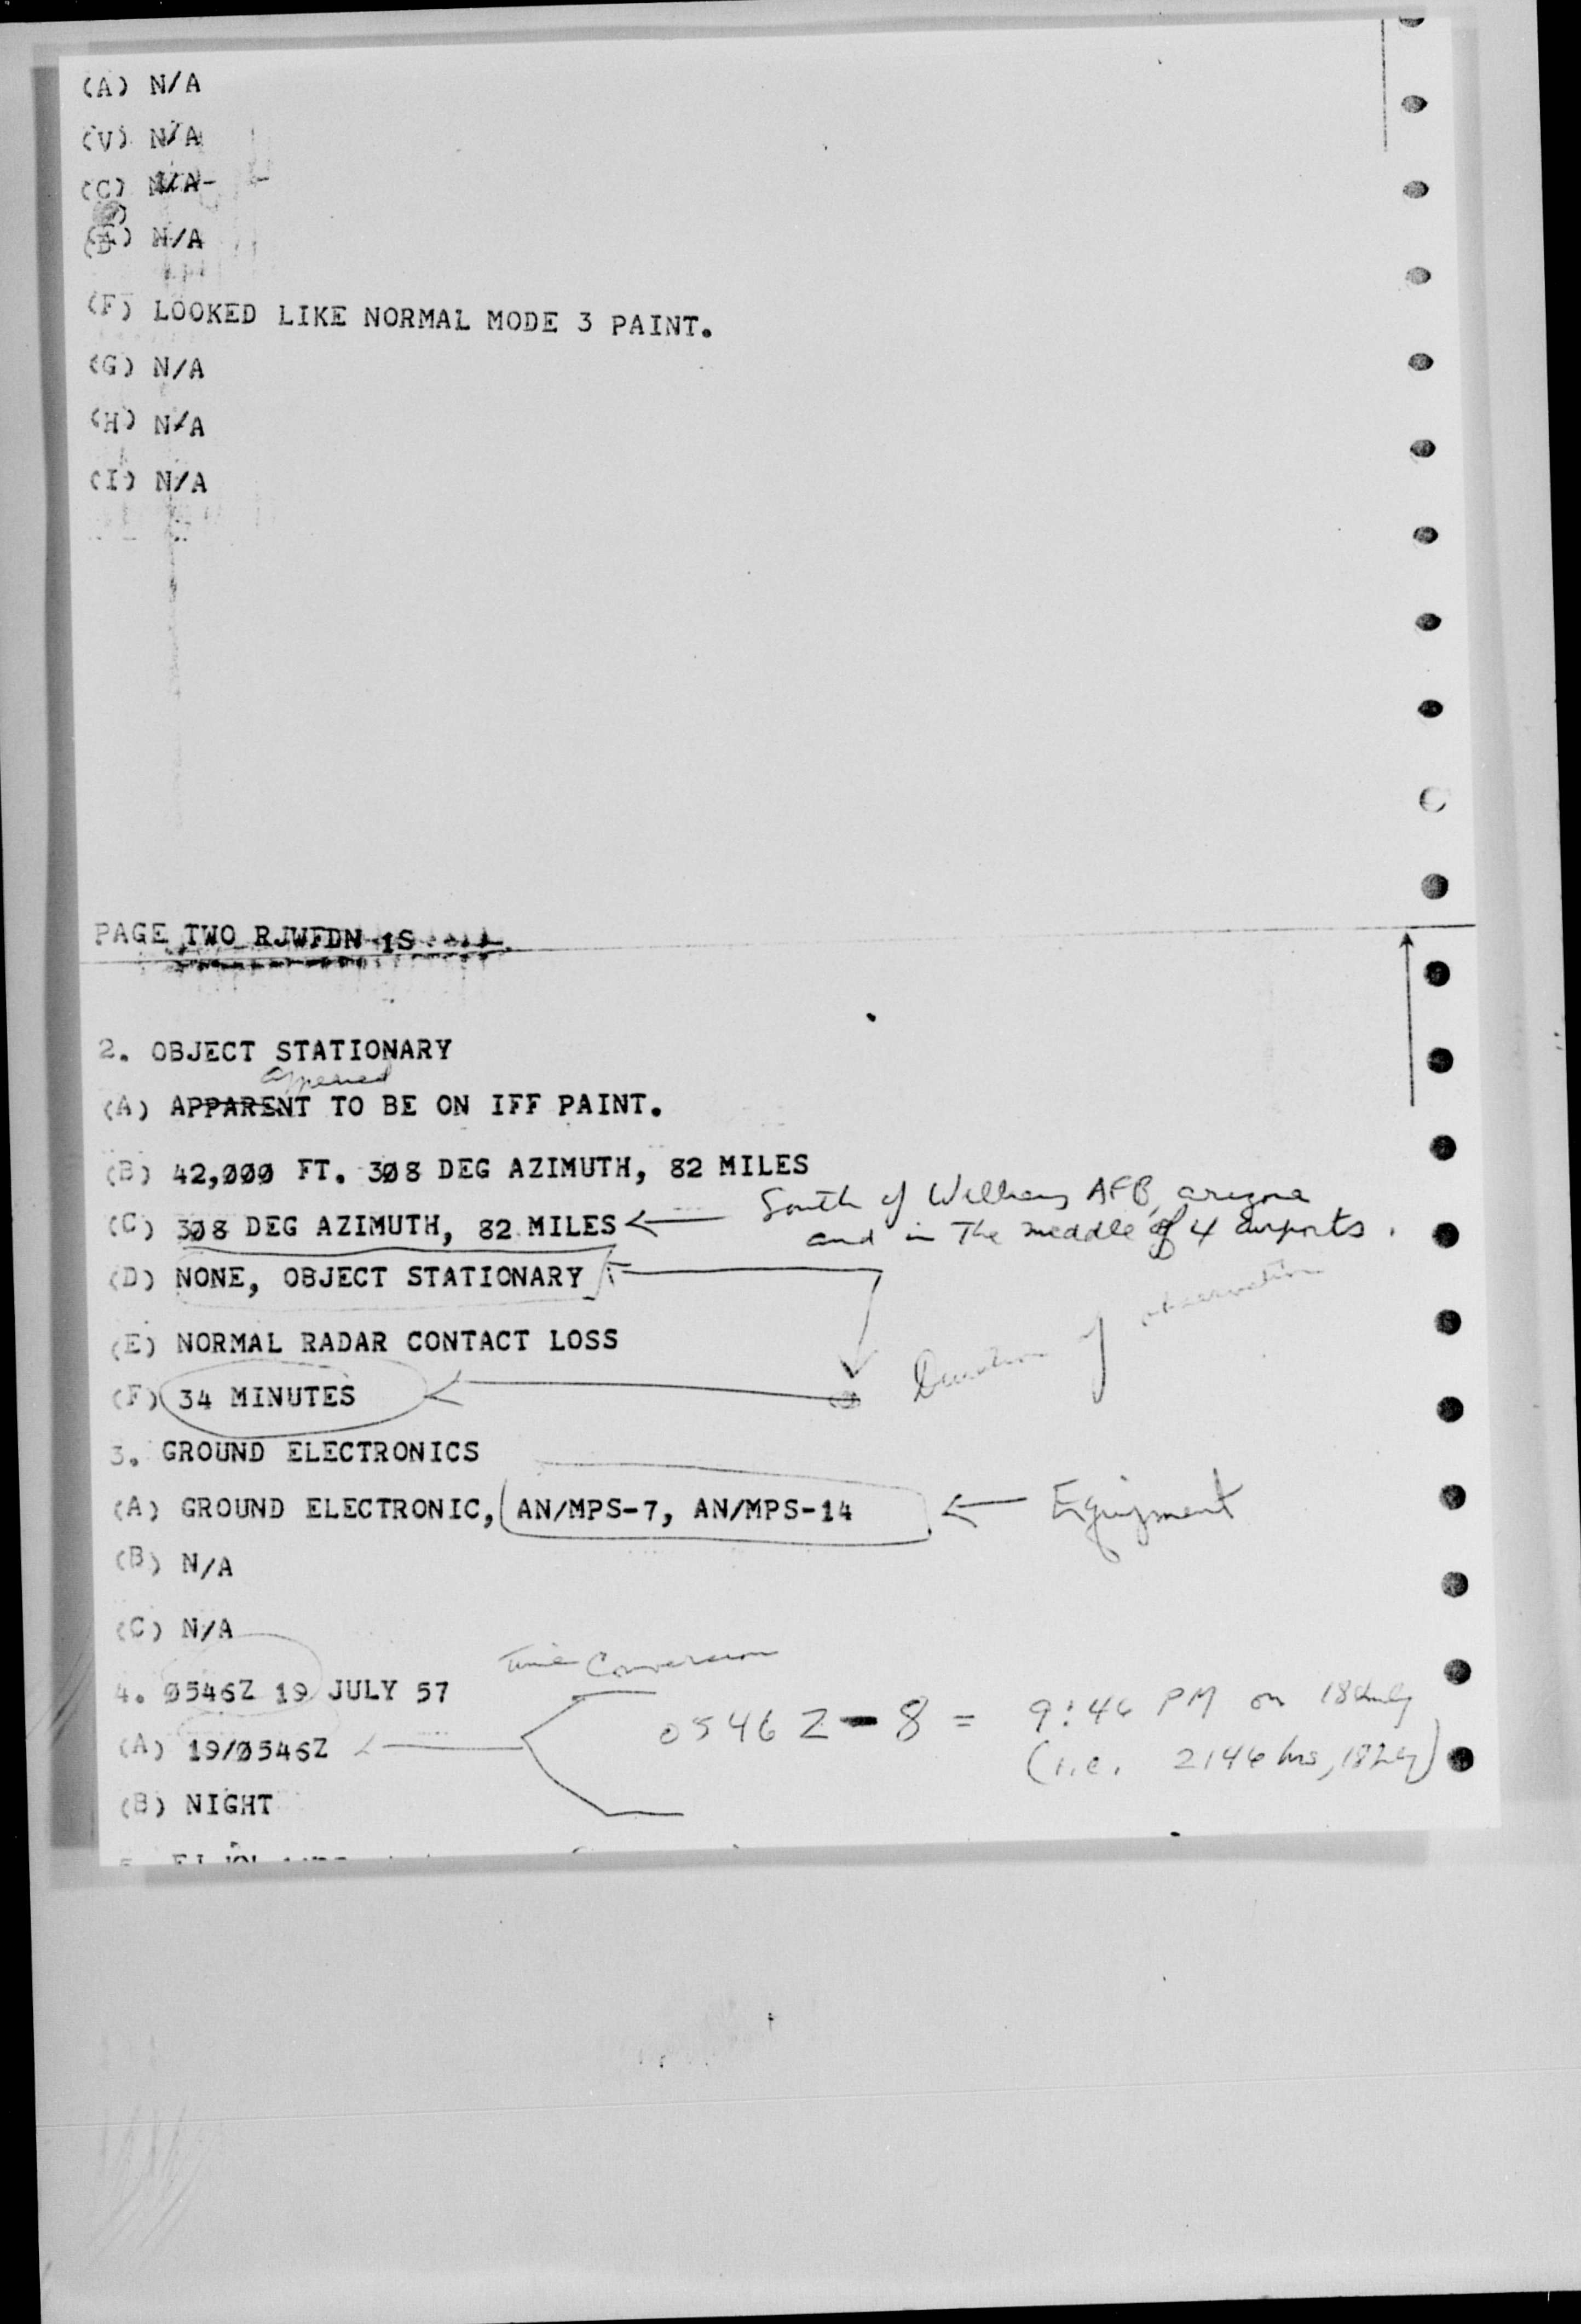 (A) N/A
(V) N/A
(C) N/A
N/A
(F) LOOKED LIKE NORMAL MODE 3 PAINT.
(G) N/A
(H) N/A
(I) N/A
PAGE TWO RJWFDN 1S
2. OBJECT STATIONARY
appeared
(A) APPARENT TO BE ON IFF PAINT.
(B) 42,000 FT. 308 DEG AZIMUTH, 82 MILES
South of Williams AFB, arizona
(C) 308 DEG AZIMUTH, 82 MILES
and in The meddle of 4 airports.
(D) NONE, OBJECT STATIONARY
(E) NORMAL RADAR CONTACT LOSS
Duration of observation
(F) 34 MINUTES
3. GROUND ELECTRONICS
(A) GROUND ELECTRONIC, AN/MPS-7, AN/MPS-14 Equipment
(B) N/A
(C) N/A
Time Conversion
4. 0546Z 19 JULY 57
0546 Z - 8 = 9:46 PM on 18 July
(A) 19/0546Z
(i.e. 2146 hrs, 18 July)
(B) NIGHT